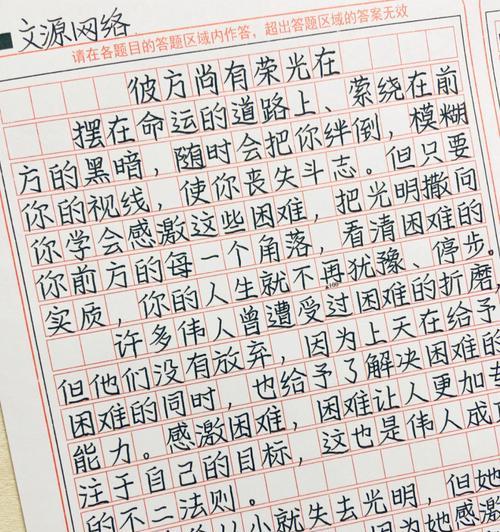 文源网络
请在各题目的答题区域内作答，超出答题区域的答案无效
彼方尚有荣光在
摆在命运的道路上、萦绕在前
方的黑暗，随时会把你绊倒，模糊
你的视线，使你丧失斗志。但只要
你学会感激这些困难，把光明撒间
你前方的每一个角落，看清困难的
实质，你的人生就不再犹豫、停步。
许多伟人曾遭受过困难的折磨，
但他们没有放弃，因为上天在给予
困难的同时，也给予了解决困难的
能力。感激困难，困难让人更加专
注于自己的目标，这也是伟人成
的不二法则。
从小就失去光明，但她